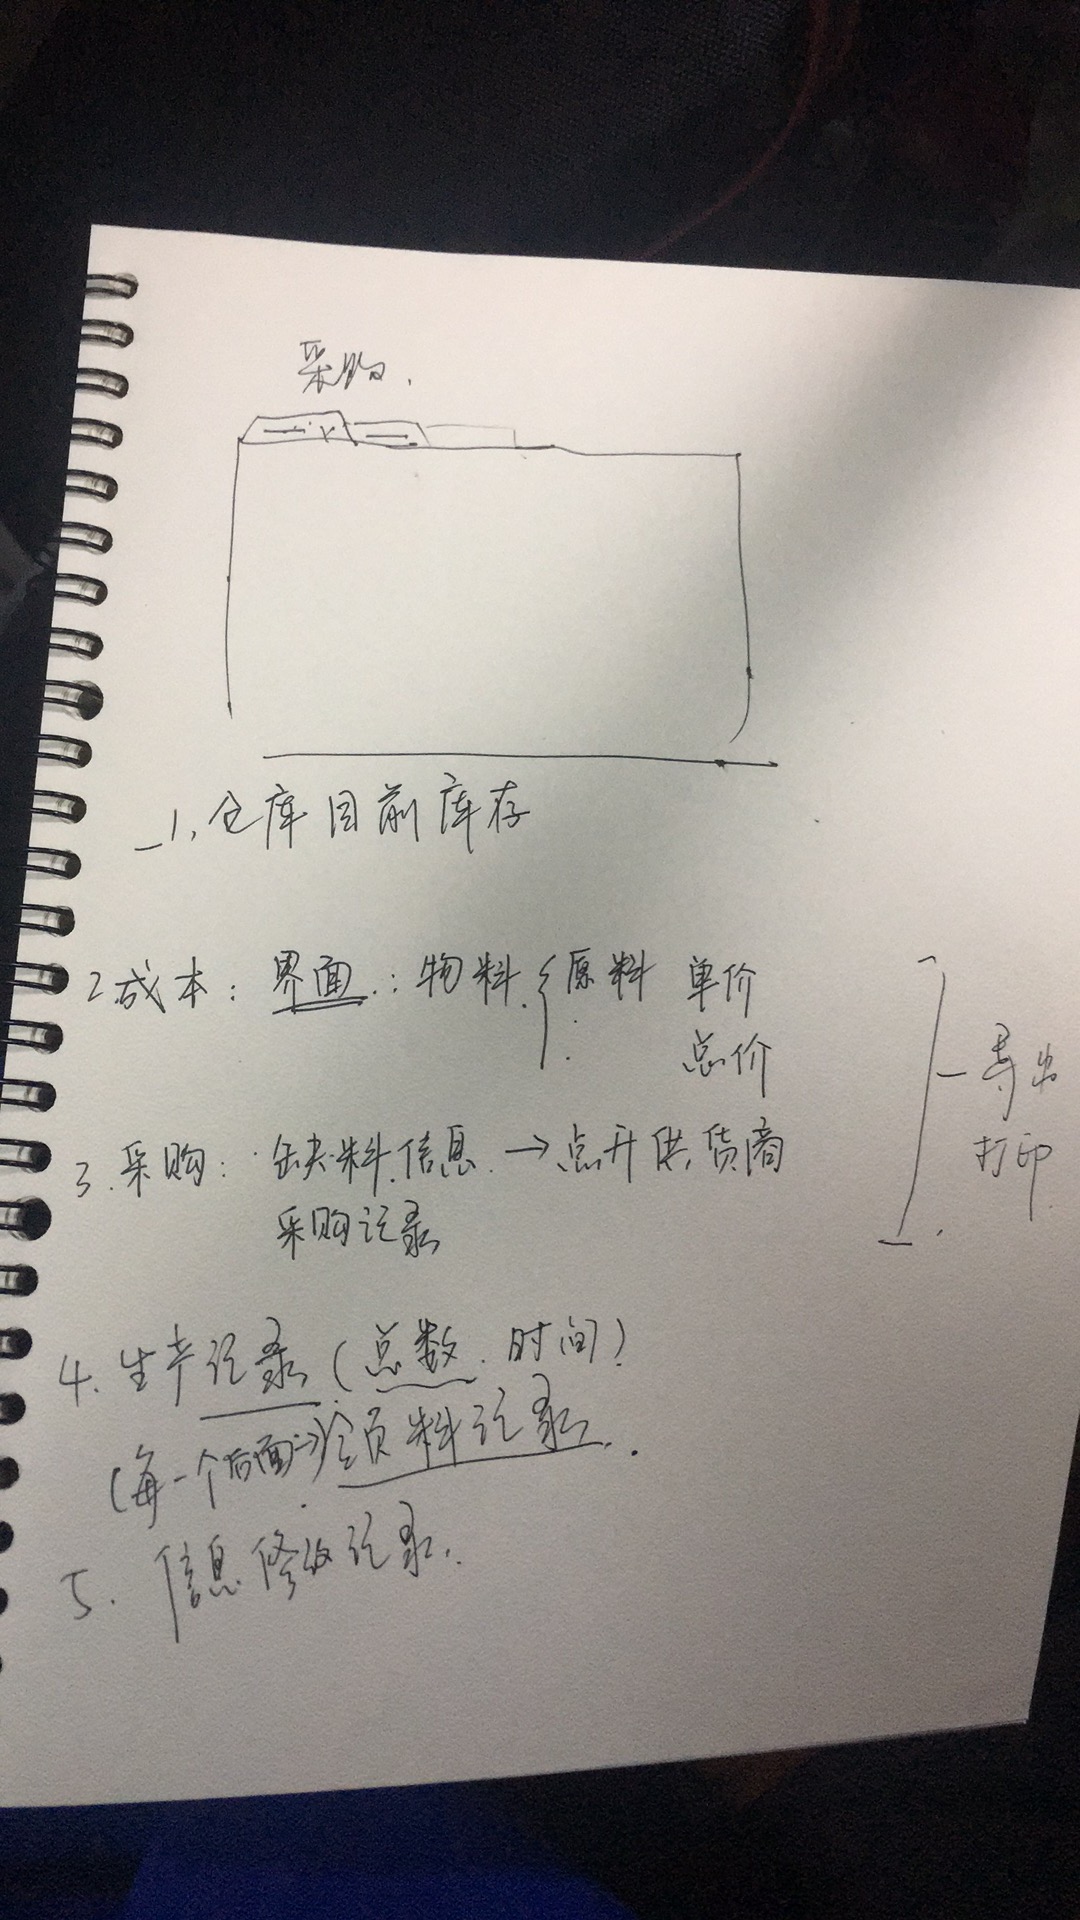 采购.
1、仓库目前库存
2 成本：界面：物料{原料 单价
总价
3. 采购：缺料信息 → 点开供货商
采购记录
导出
打印
4. 生产记录（总数、时间）
（每一个后面→）领料记录.
5. 信息修改记录.